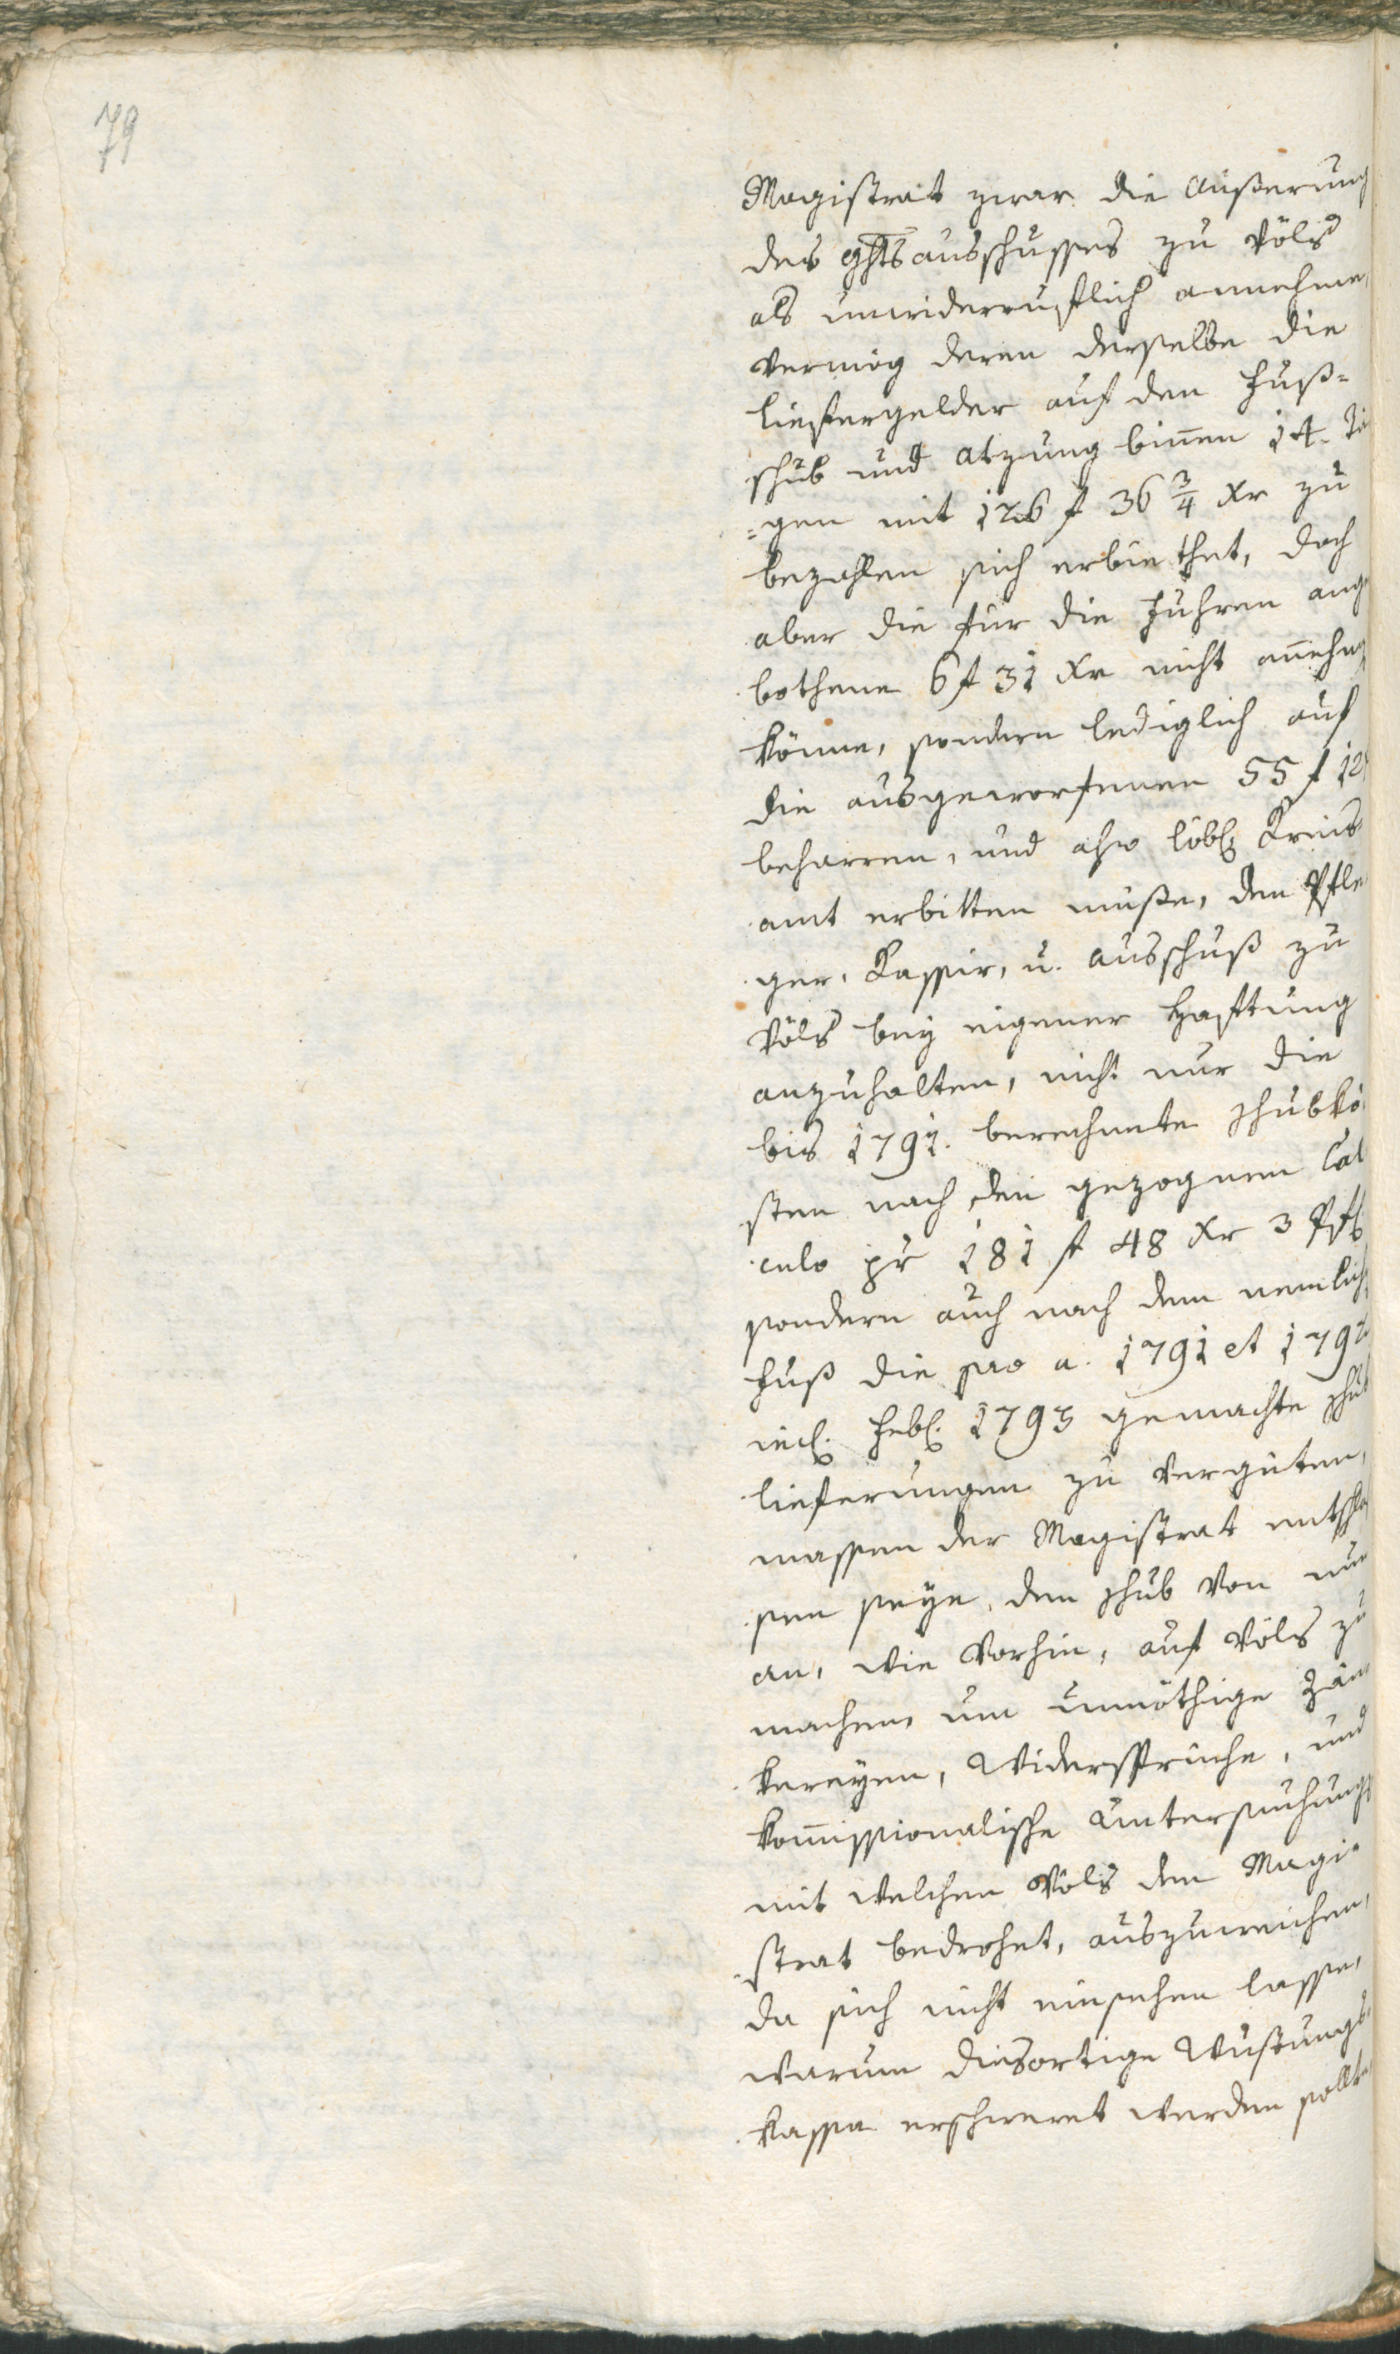 79
Magistrat zwar die Äußerung
des ghtsausschusses zu Völs
als unwiderruflich annehme,
vermög deren derselbe die
liefergelder auf den Fuß=
schub und Atzung binnen 14. Tä
=gen mit 126 f 36 3/4 Xr zu
bezahlen sich erbiethet, doch
aber die für die Fuhren ang
bothene 6 f 31 Xr nicht annehm
könne, sondern lediglich auf
die ausgeworfenen 55 f 12
beharren, und ein löbl. Kreis
amt erbitten müße, den Pfle
ger, Kassir, u. Ausschuß zu
Völs bey eigener Haftung
anzuhalten, nicht nur die
bis 1791. berechnete Schubkö
sten nach den gezognem Cal
culo pr 181 f 48 Xr 3 Pf
sondern auch nach dem nemlich
Fuß die pro a. 1791 et 1792
incl. Febl. 1793 gemachte Schub
lieferungen zu vergüten,
massen der Magistrat entschlo
sen seye, den Schub von nun
an, wie vorhin, auf Völs zu
machen, um unnöthige Zän
kereyen, Widersprüche, und
kommissionalische Untersuchung
mit welchen Völs den Magi=
strat bedrohet, auszuweichen,
da sich nicht einsehen lasse,
warum diesortige Wustungs
kassa erschweret werden sollte